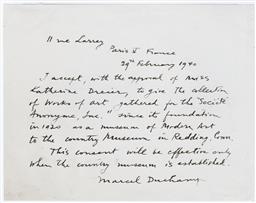 11 rue Larrey
Paris V France
29th February 1940
I accept, with the approval of Miss
Katherine Dreier, to give the collection
of works of art, gathered for the "Société
Anonyme, Inc." since its foundation
in 1920 as a museum of Modern Art
to the Country Museum in Redding, Conn.
This consent will be effective only
when the country museum is established.
Marcel Duchamp